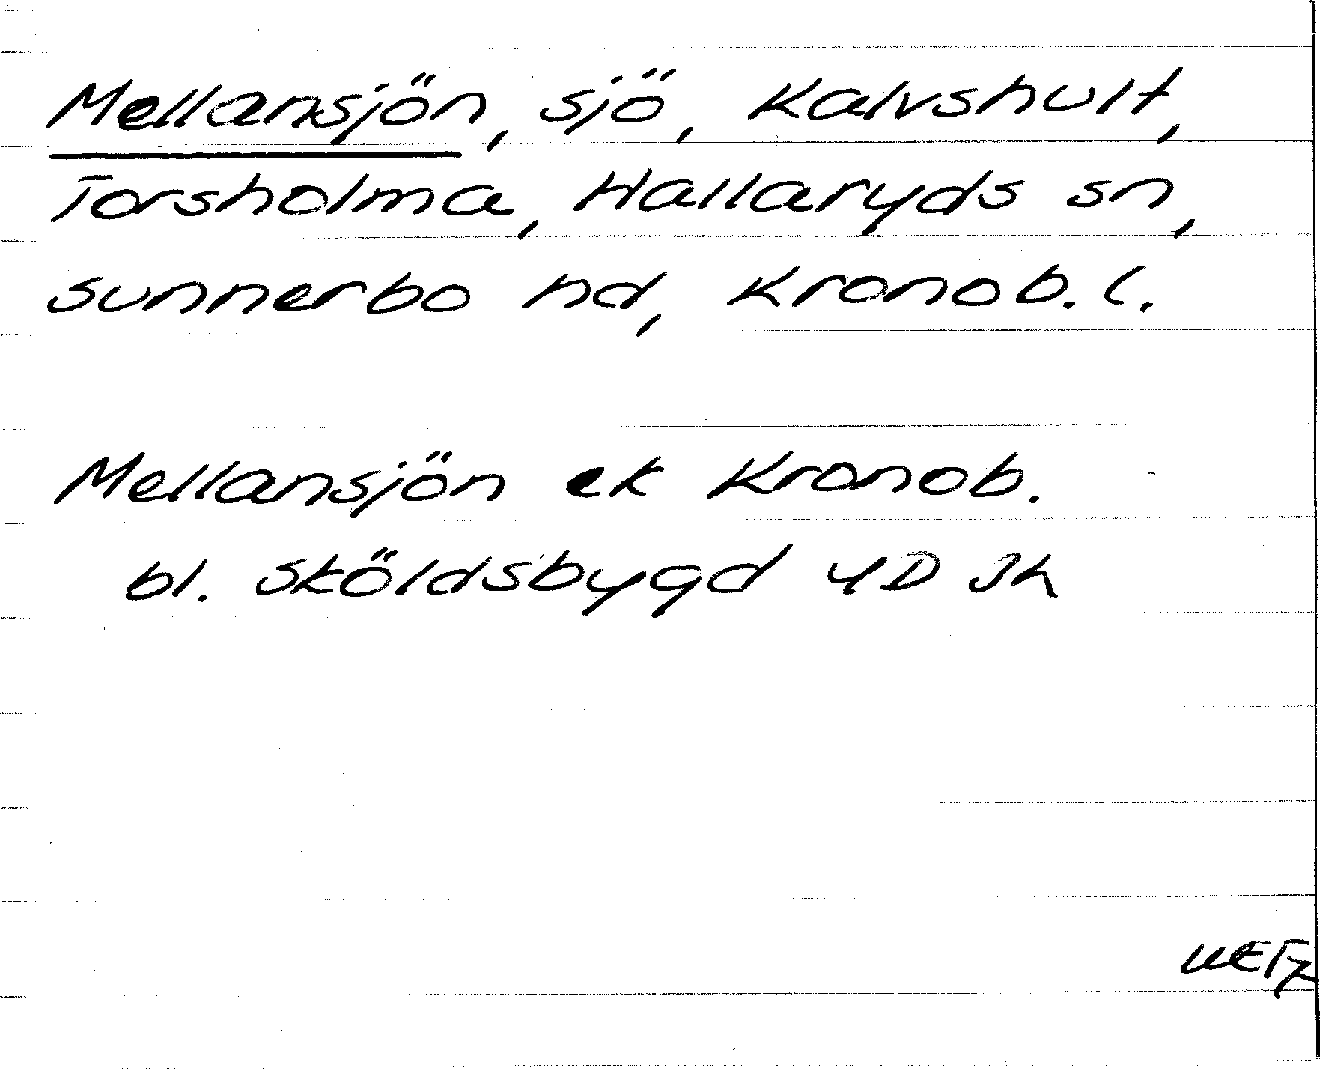 Mellansjön, sjö, Kalvshult,
Torsholma, Hallaryds sn,
Sunnerbo hd, Kronob. l.
Mellansjön ek Kronob.
bl. Sköldsbygd 4D Jh